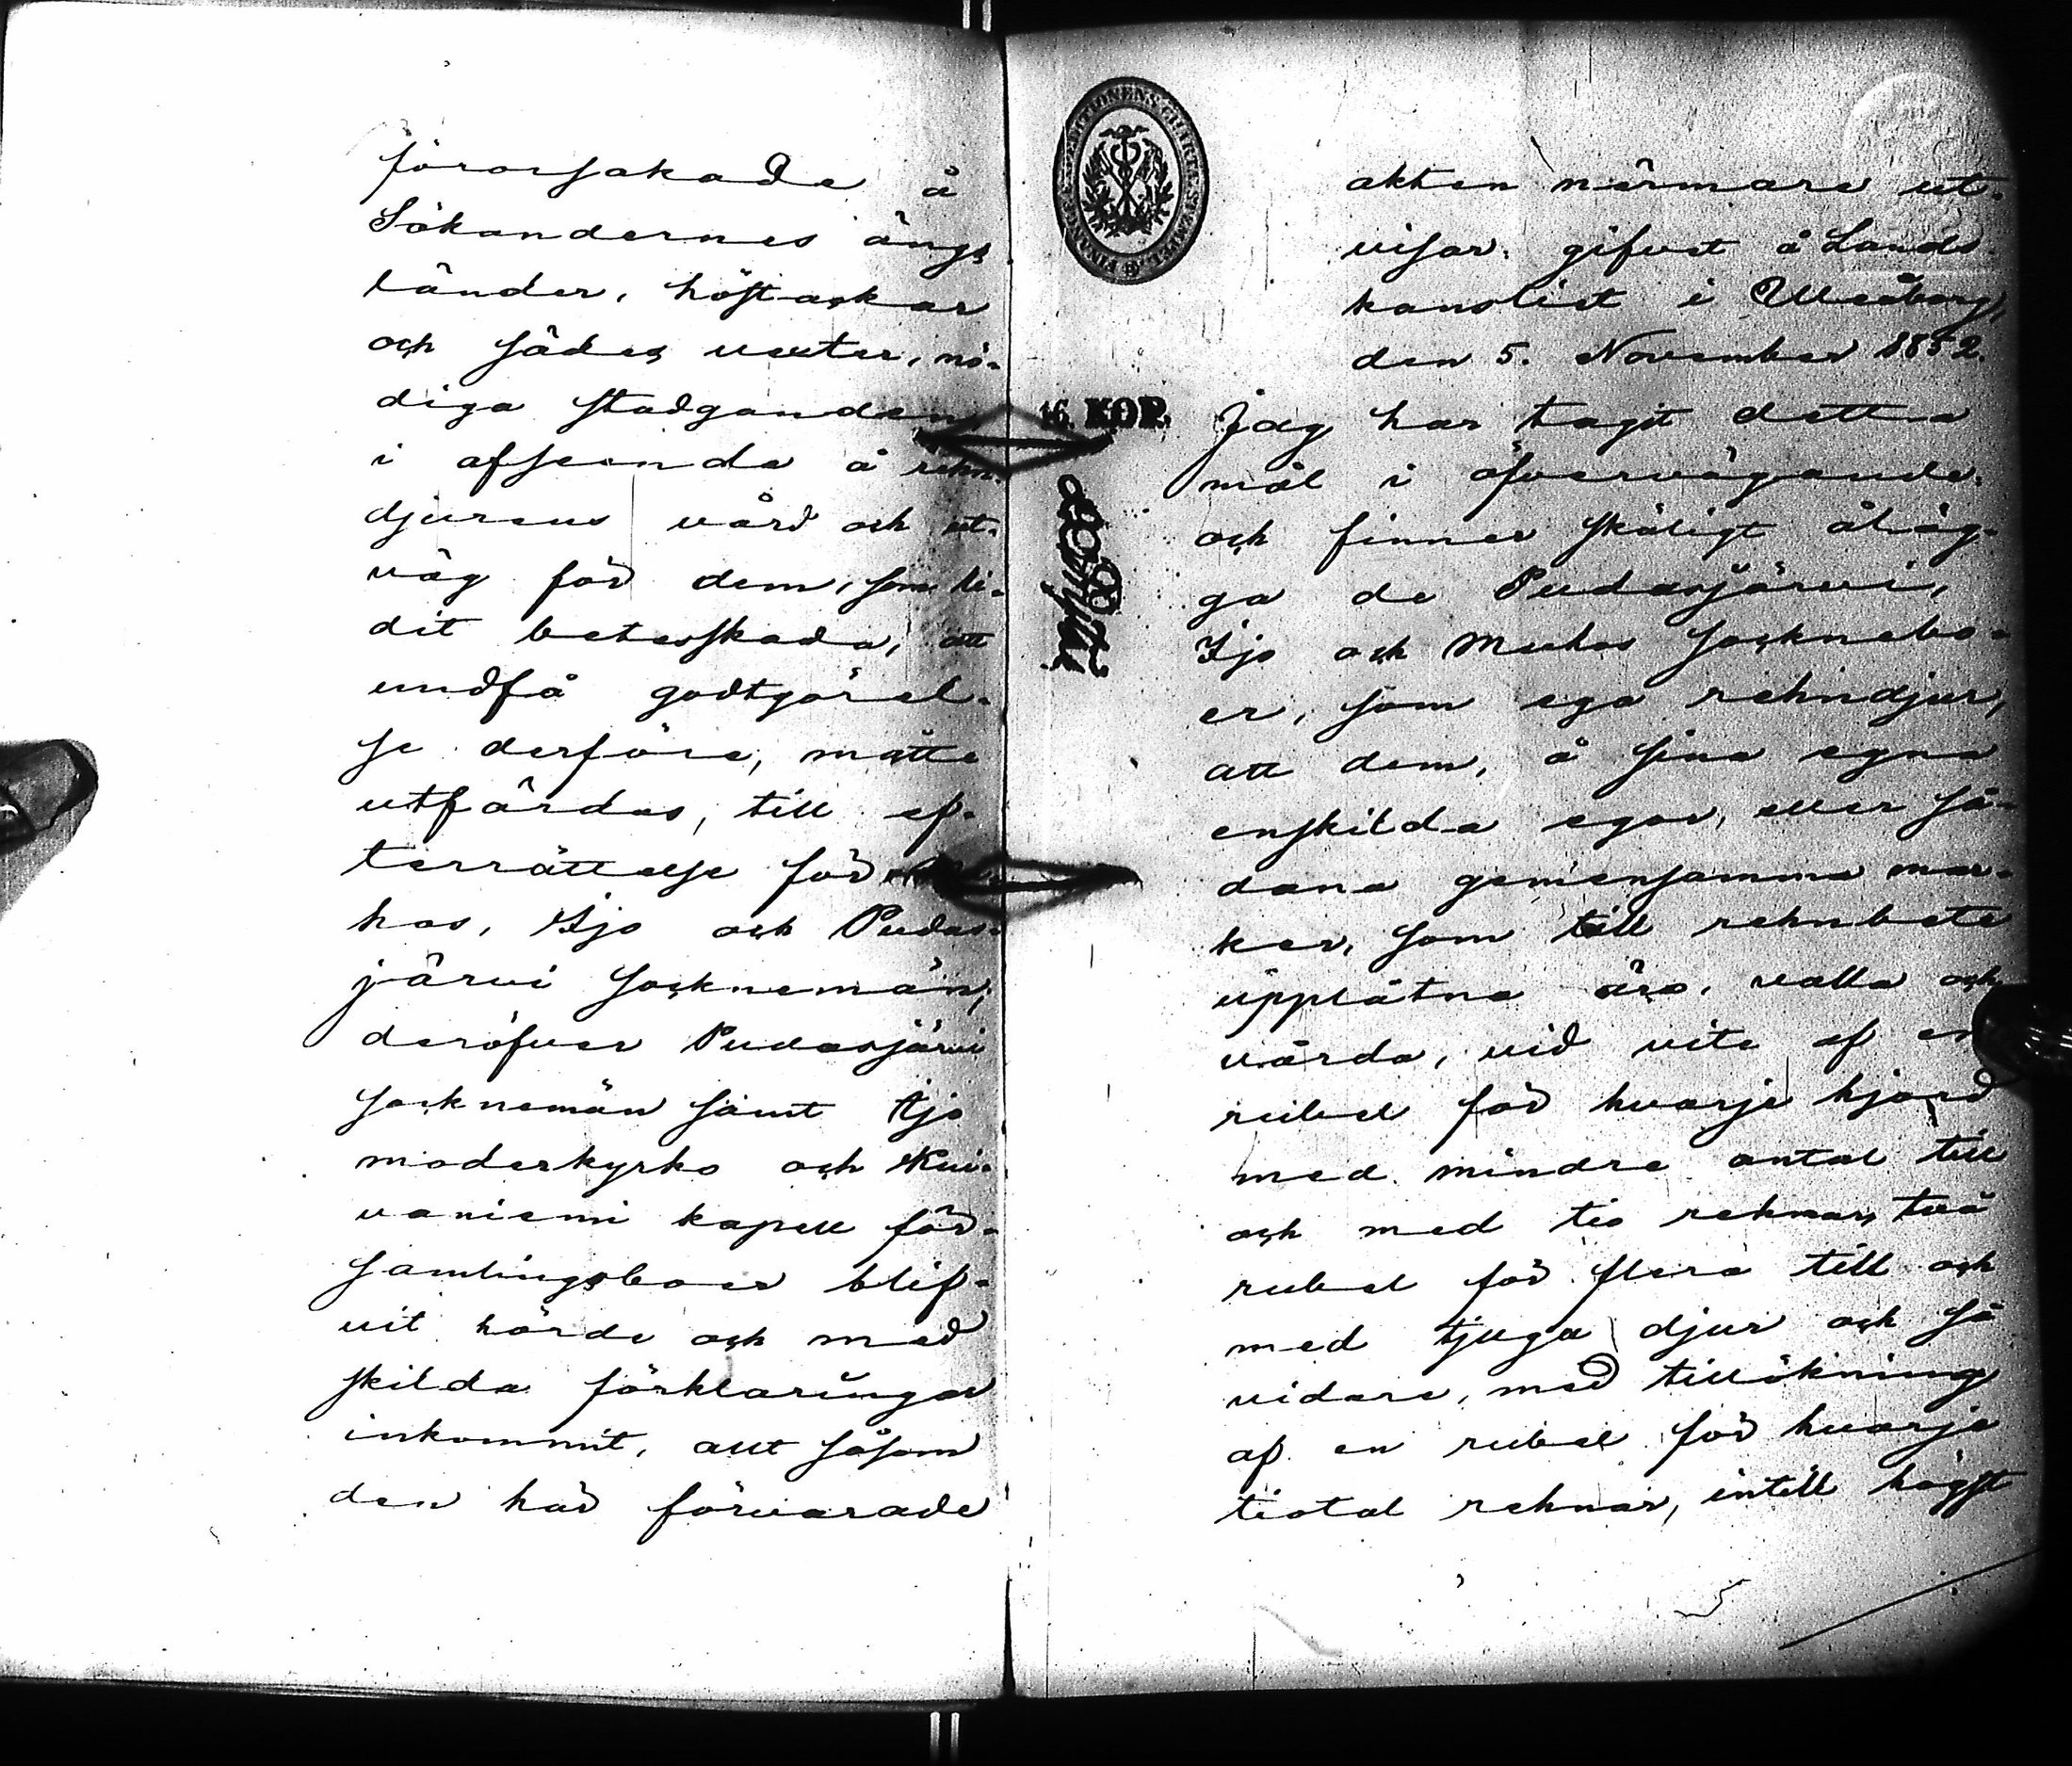 förorsakade å
Sökandernes ängs
länder, höstackar
och sädes vexter, nö-
diga stadganden
i afseende å rehn-
djurens vård och ut-
väg för dem, som li-
dit betesskada, att
undfå godtgörel-
se derföre, måtte
utfärdas, till ef-
terrättelse för
hos, Ijo och Pudas-
järvi socknemän;
deröfver Pudasjärvi
socknemän samt Ijo
moderkyrko och Kui-
vaniemi kapell för-
samlingsboer blif-
vit hörde och med
skilda förklaringar
inkommit, allt såsom
den här förvarade
FINANCE EXPEDITIONENS CHARTÆ STÄMPEL
16. KOP.
akten närmare ut-
visar: gifvet å Lands-
kansliet i Uleåborg,
den 5. November 1852.
Jag har tagit detta
mål i öfvervägande,
och finner skäligt åläg-
ga de Pudasjärvi,
Ijo och Muhos socknebo-
er, som ega rehndjur,
att dem, å sina egna
enskilda egor, eller så-
dana gemensamma mar-
ker, som till rehnbete
upplåtna äro, valla och
vårda, vid vite af en
rubel för hvarje hjord
med mindre antal till
och med tio rehnar, två
rubel för flera till och
med tjugu djur och så
vidare, med tillökning
af en rubel för hvarje
tiotal rehnar, intill högst